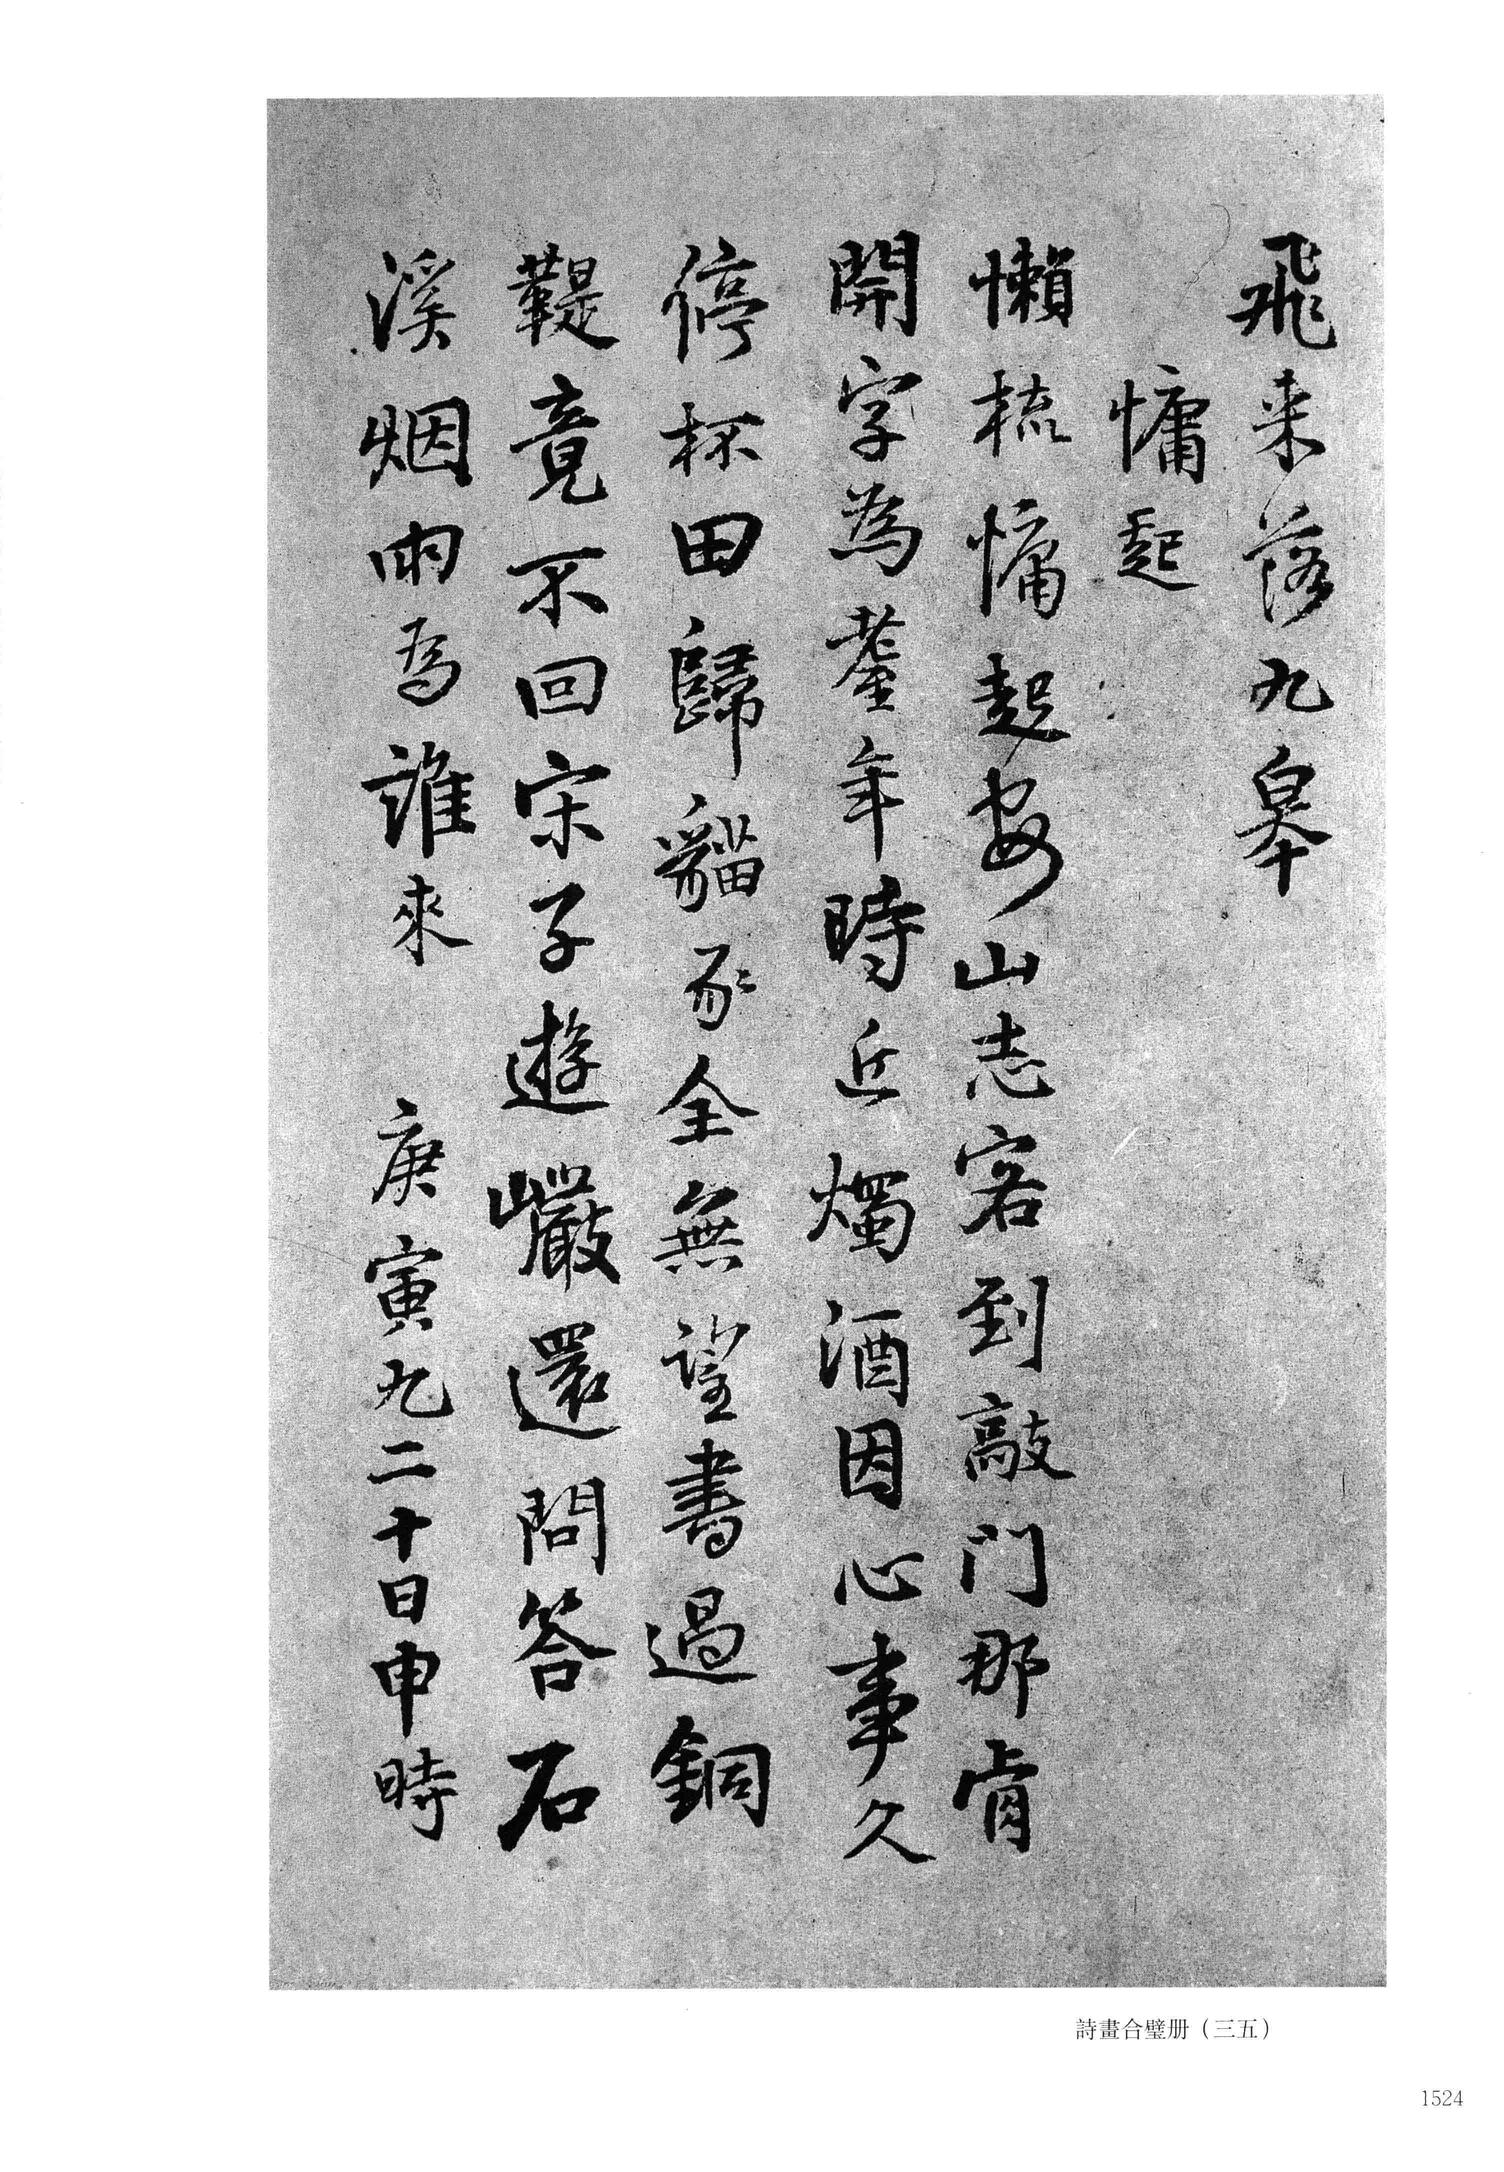 飛来落九皋
慵起
懶梳慵起安山志客到敲門那肯
開字為耋年時近燭酒因心事久
停杯田歸貓豕全無望書過銅
鞮竟不回宋子遊巖還問答石
溪烟雨為誰來 庚寅九二十日申時
詩畫合璧册（三五）
1524